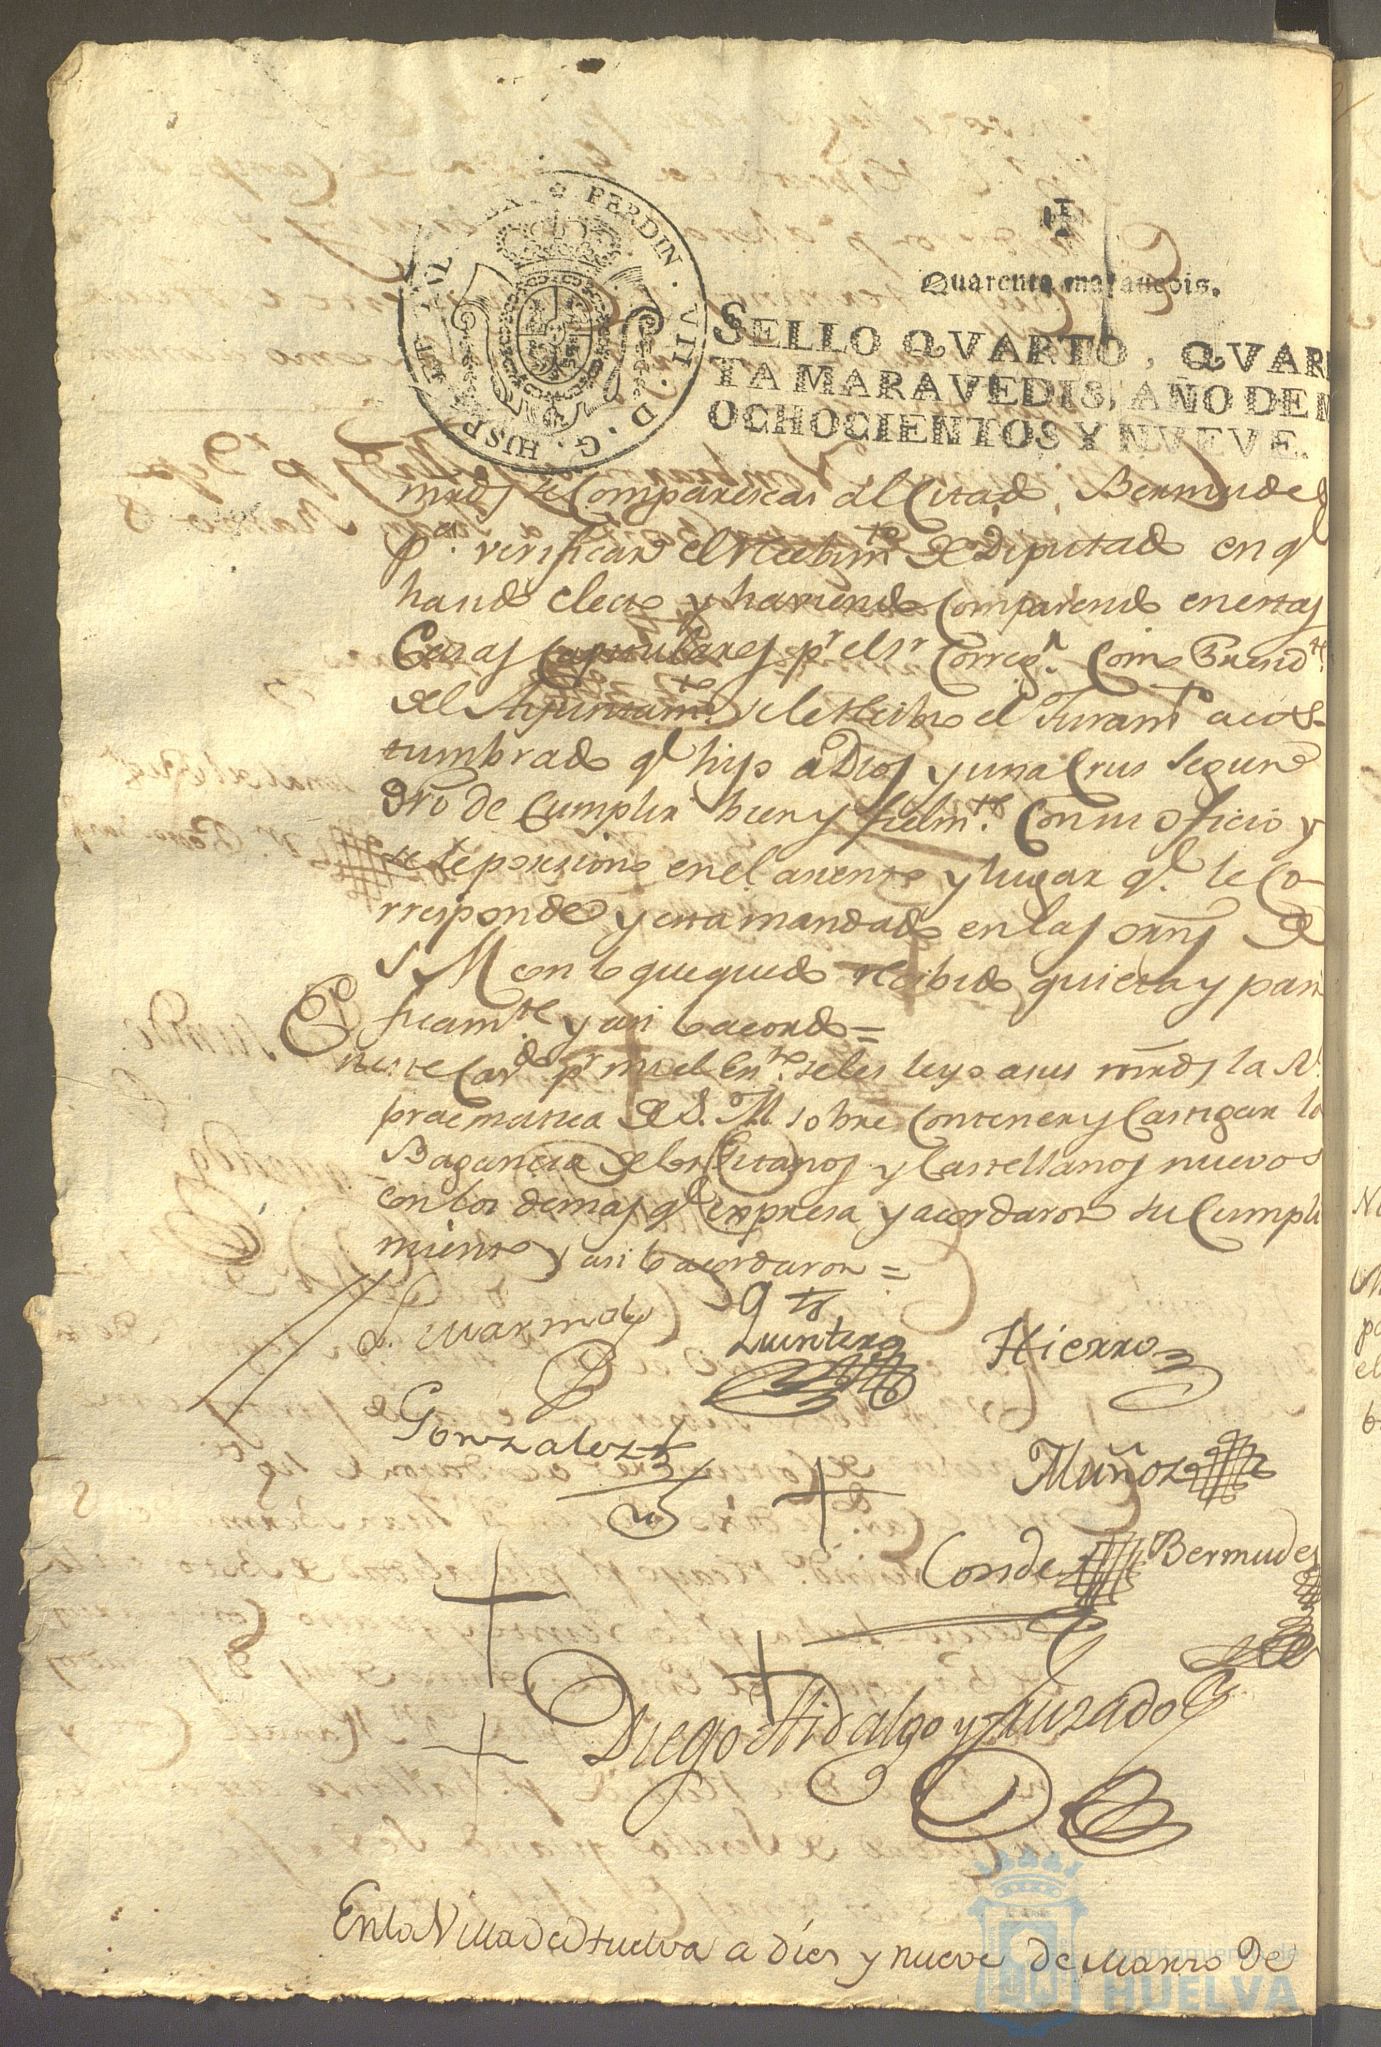 FERDIN · VII · D · G · HISP
Quarenta marauedis.
SELLO QVARTO, QVAR
TA MARAVEDIS, AÑO DE M
OCHOCIENTOS Y NVEVE.
mrds se Comparescas al Citado Bermudes
pa. verificar el recibimto de Diputado en qe
hando electo y haviendo Comparendo en estas
Casas Capitulares pr el sr Corregr. Como Presidte
del Ayuntamto se le recibio el Juramto acos-
tumbrado qe hiso a Dios y una Crus segun
dro de Cumplir bien y fielmte. Con su oficio y
se le posesiono en el asiento y lugar qe. le Co-
rresponde y esta mandado en las orns de
S. M con lo que quedo recibido quieta y pasi
ficamte. y asi lo acordo =
En este Cavdo pr mi el Enno. se les leyo a sus mrds la Rl
pracmatica de S. M. sobre Contener y Castigar la
Bagancia de los Gitanos y Castellanos nuevos
con los demas qe expresa y acordaron su Cumpli
miento y asi lo acordaron =
Quintero
Hierro
Gonzales
Muñoz
Conde
Bermudes
Diego Hidalgo y Jurado
En la Villa de Huelva a dies y nueve de Marzo de
Ayuntamiento de
HUELVA